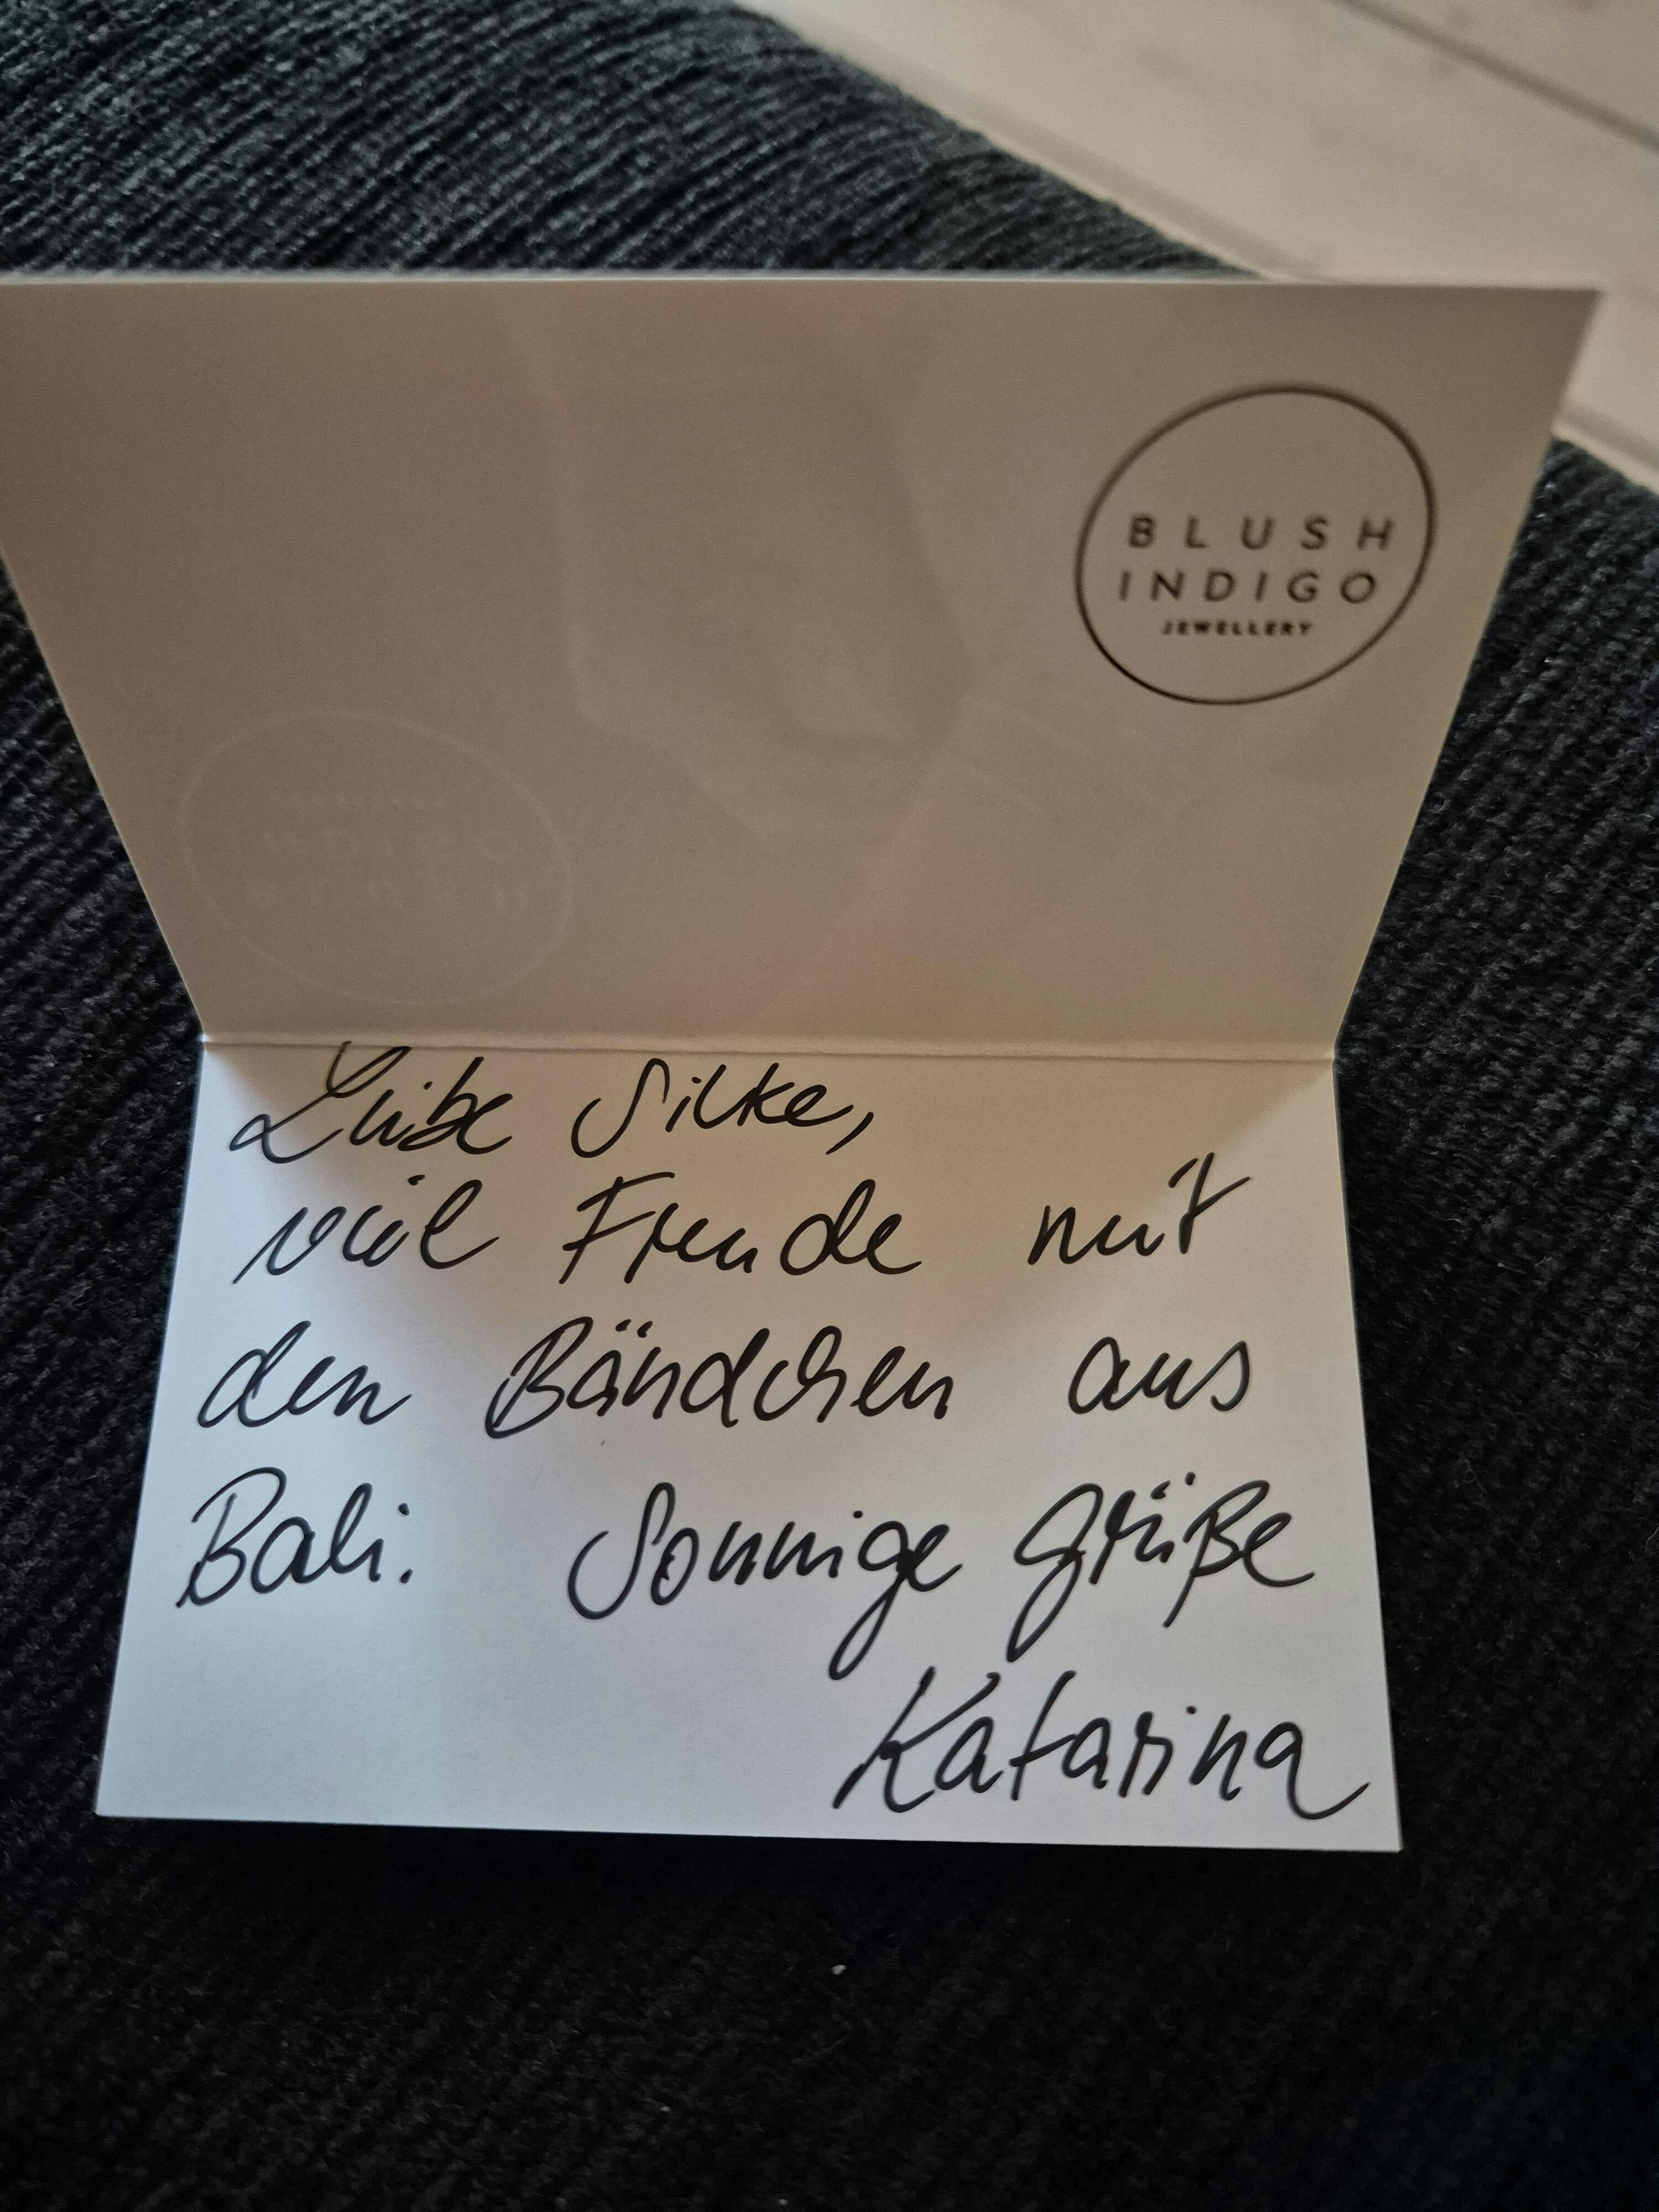 BLUSH
INDIGO
JEWELLERY
Liebe Silke,
viel Freude mit
den Bändchen aus
Bali. Sonnige Grüße
Katarina